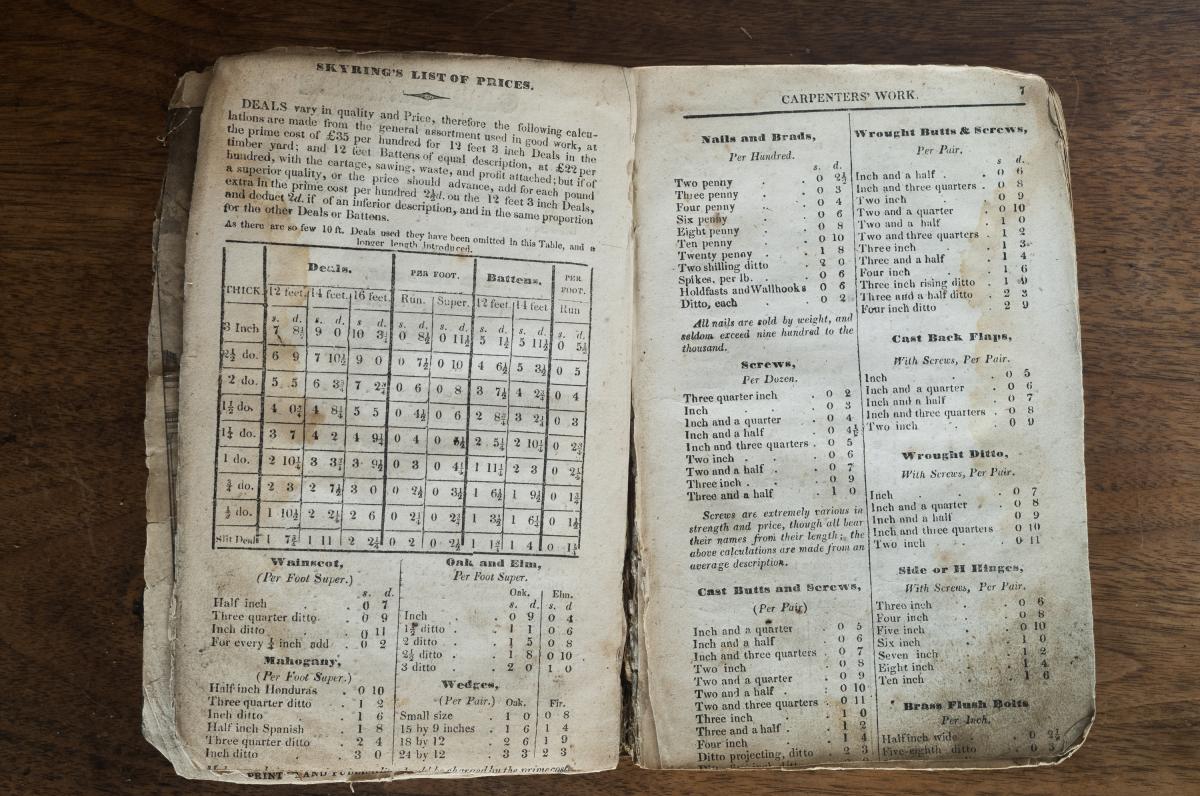 SKYRING'S LIST OF PRICES.
DEALS vary in quality and Price, therefore the following calcu-
lations are made from the general assortment used in good work, at
the prime cost of £35 per hundred for 12 feet 3 inch Deals in the
timber yard; and 12 feet Battens of equal description, at £22 per
hundred, with the cartage, sawing, waste, and profit attached; but if of
a superior quality, or the price should advance, add for each pound
extra in the prime cost per hundred 2½d. on the 12 feet 3 inch Deals,
and deduct 2d. if of an inferior description, and in the same proportion
for the other Deals or Battens.
As there are so few 10 ft. Deals used they have been omitted in this Table, and a
longer length introduced.
THICK. Deals. PER FOOT. Battens. PER FOOT.
12 feet. 14 feet. 16 feet. Run. Super. 12 feet 14 feet Run
s. d. s. d. s. d. s. d. s. d. s. d. s. d. s. d.
3 Inch 7 8½ 9 0 10 3½ 0 8½ 0 11½ 5 1½ 5 11½ 0 5½
2½ do. 6 9 7 10½ 9 0 0 7½ 0 10 4 6½ 5 3½ 0 5
2 do. 5 5 6 3¾ 7 2¾ 0 6 0 8 3 7½ 4 2¾ 0 4
1½ do. 4 0¾ 4 8¼ 5 5 0 4½ 0 6 2 8¾ 3 2¼ 0 3
1¼ do. 3 7 4 2 4 9¼ 0 4 0 2 5¼ 2 10¼ 0 2¾
1 do. 2 10¼ 3 3¾ 3 9½ 0 3 0 4¼ 1 11¼ 2 3 0 2¼
¾ do. 2 3 2 7½ 3 0 0 2½ 0 3½ 1 6½ 1 9½ 0 1¾
½ do. 1 10½ 2 2¼ 2 6 0 2¼ 0 2¾ 1 3½ 1 6¼ 0 1½
Slit Deal 1 7¾ 1 11 2 2¼ 0 2 0 2½ 1 1¾ 1 4 0
Wainscot,
(Per Foot Super.)
s. d.
Half inch 0 7
Three quarter ditto 0 9
Inch ditto 0 11
For every ¼ inch add 0 2
Mahogany,
(Per Foot Super.)
Half inch Honduras 0 10
Three quarter ditto 1 2
Inch ditto 1 6
Half inch Spanish 1 8
Three quarter ditto 2 4
Inch ditto 3 0
Oak and Elm,
Per Foot Super.
Oak. Elm.
s. d. s. d
Inch 0 9 0 4
1½ ditto 1 1 0 6
2 ditto 1 5 0 8
2½ ditto 1 8 0 10
3 ditto 2 0 1 0
Wedges,
(Per Pair.) Oak. Fir.
Small size 1 0 0 8
15 by 9 inches 1 6 1 4
18 by 12 2 6 1 9
24 by 12 3 3 2 3
charged by the prime cost
CARPENTERS' WORK. 7
Nails and Brads,
Per Hundred.
s. d.
Two penny 0 2½
Three penny 0 3
Four penny 0 4
Six penny 0 6
Eight penny 0 8
Ten penny 0 10
Twenty penny 1 8
Two shilling ditto 2 0
Spikes, per lb. 0 6
Holdfasts and Wallhooks 0 6
Ditto, each 0 2
All nails are sold by weight, and
seldom exceed nine hundred to the
thousand.
Screws,
Per Dozen.
Three quarter inch 0 2
Inch 0 3
Inch and a quarter 0 4
Inch and a half 0 4½
Inch and three quarters 0 5
Two inch 0 6
Two and a half 0 7
Three inch 0 9
Three and a half 1 0
Screws are extremely various in
strength and price, though all bear
their names from their length; the
above calculations are made from an
average description.
Cast Butts and Screws,
(Per Pair)
Inch and a quarter 0 5
Inch and a half 0 6
Inch and three quarters 0 7
Two inch 0 8
Two and a quarter 0 9
Two and a half 0 10
Two and three quarters 0 11
Three inch 1 0
Three and a half 1 2
Four inch 1 4
Ditto projecting, ditto 2 3
Wrought Butts & Screws,
Per Pair.
s d.
Inch and a half 0 6
Inch and three quarters 0 8
Two inch 0 9
Two and a quarter 0 10
Two and a half 1 0
Two and three quarters 1 2
Three inch 1 3
Three and a half 1 4
Four inch 1 6
Three inch rising ditto 1 9
Three and a half ditto 2 3
Four inch ditto 2 9
Cast Back Flaps,
With Screws, Per Pair.
Inch 0 5
Inch and a quarter 0 6
Inch and a half 0 7
Inch and three quarters 0 8
Two inch 0 9
Wrought Ditto,
With Screws, Per Pair.
Inch 0 7
Inch and a quarter 0 8
Inch and a half 0 9
Inch and three quarters 0 10
Two inch 0 11
Side or H Hinges,
With Screws, Per Pair.
Three inch 0 6
Four inch 0 8
Five inch 0 10
Six inch 1 0
Seven inch 1 2
Eight inch 1 4
Ten inch 1 6
Brass Flush Bolts
Per Inch.
Half inch wide 0 2½
Five-eighth ditto 0 3